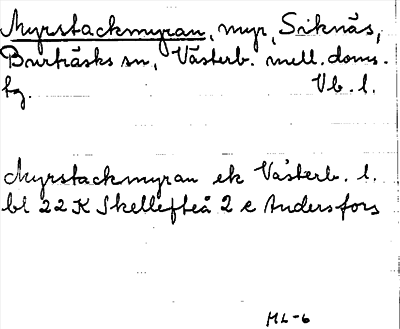 Myrstackmyran, myr, Siknäs,
Burträsks sn, Västerb. mell. doms.
fg. Vb. l.
Myrstackmyran ek Västerb. l.
bl 22 K Skellefteå 2 e Andersfors
ML-6